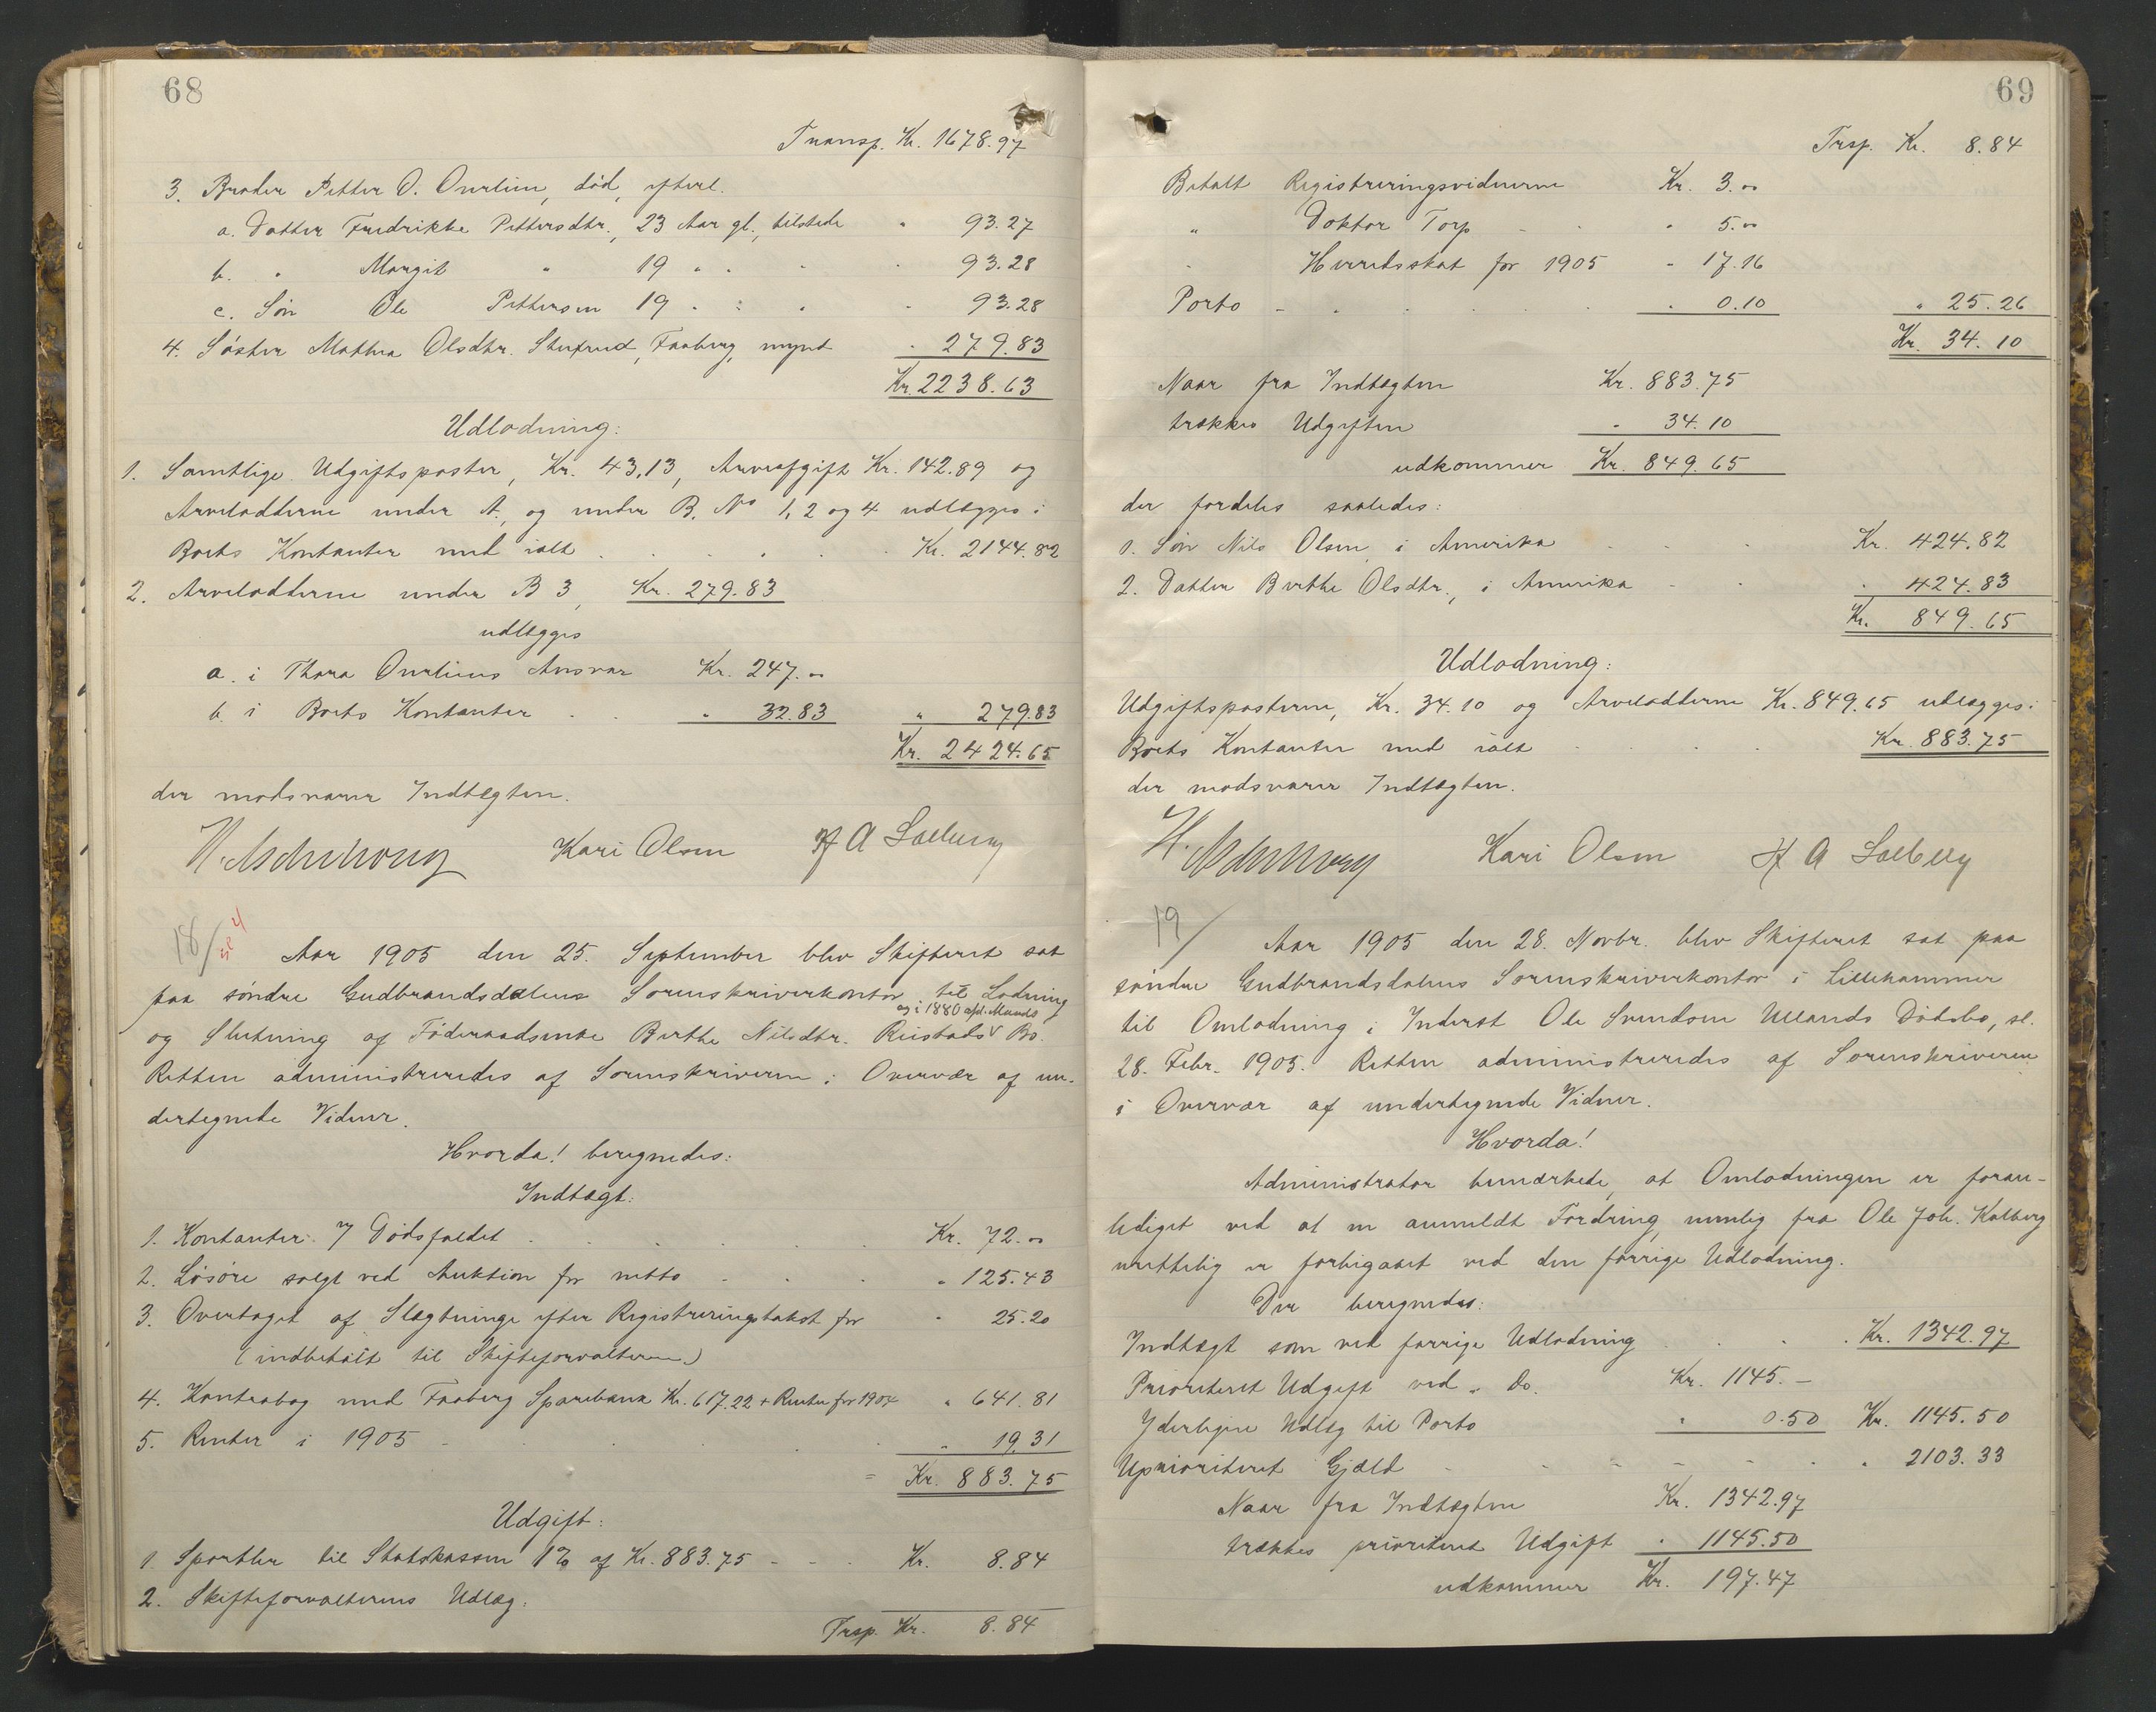 68
Transp. Kr. 1678.97
3. Broder Petter O. Onrlien, død, efterl.
a. Datter Fredrikke Pettersdtr., 23 Aar gl., tilstede " 93.27
b. " Margit " 19 " " " " 93.28
c. Søn Ole Pettersen 19 " " " " 93.28
4. Søster Mathea Olsdtr. Stufrud, Faaberg, mynd " 279.83
Kr. 2238.63
Udlodning:
1. Samtlige Udgiftsposter, Kr. 43.13, Arveafgift Kr. 142.89 og
Arvelodderne under A., og under B. No 1, 2 og 4 udlægges i
Boets Kontanter med ialt . . . . Kr. 2144.82
2. Arvelodderne under B 3, Kr. 279.83
udlægges
a. i Thora Onrliens Ansvar Kr. 247.00
b. i Boets Kontanter . . " 32.83 " 279.83
Kr. 2424.65
der modsvarer Indtægten.
Kari Olsen H A Solberg
18/ Aar 1905 den 25. September blev Skifteret sat
paa søndre Gudbrandsdalens Sorenskriverkontor til Lodning
og i 1880 afd. Mands
og Slutning af Føderaadsenke Berthe Nilsdtr. Reistads V Bo.
Retten administreredes af Sorenskriveren i Overvær af un-
dertegnede Vidner.
Hvorda! beregnedes:
Indtægt:
1. Kontanter v/ Dødsfaldet . . . . . Kr. 72.00
2. Løsøre solgt ved Auktion for netto - . . " 125.43
3. Overtaget af Slægtninge efter Registreringstakst for " 25.20
(indbetalt til Skifteforvalteren.)
4. Kontrabog med Faaberg Sparebank Kr. 617.22 + Renter for 1904 " 641.81
5. Renter i 1905 - . . . . " 19.31
= Kr. 883.75
Udgift:
1. Sportler til Statskassen 1% af Kr. 883.75 - - . Kr. 8.84
2. Skifteforvalterens Udlæg:
Trsp. Kr. 8.84
69
Trsp. Kr. 8.84
Betalt Registreringsvidnerne Kr. 3.00
" Doktor Torp - . " 5.00
" Herredsskat for 1905 " 17.16
Porto - . . . . . " 0.10 " 25.26
Kr. 34.10
Naar fra Indtægten Kr. 883.75
trækkes Udgiften " 34.10
udkommer Kr. 849.65
der fordeles saaledes:
1. Søn Nils Olsen, i Amerika . . . Kr. 424.82
2. Datter Berthe Olsdtr., i Amerika - . " 424.83
Kr. 849.65
Udlodning:
Udgiftsposterne, Kr. 34.10 og Arvelodderne Kr. 849.65 udlægges i
Boets Kontanter med ialt . . . . Kr. 883.75
der modsvarer Indtægten.
Kari Olsen H A Solberg
19/ Aar 1905 den 28. Novbr. blev Skifteret sat paa
søndre Gudbrandsdalens Sorenskriverkontor i Lillehammer
til Omlodning i Inderst Ole Svendsen Ullands Dødsbo, sl.
28. Febr. 1905. Retten administreredes af Sorenskriveren
i Overvær af undertegnede Vidner.
Hvorda!
Administrator bemærkede, at Omlodningen er foran-
lediget ved at en anmeldt Fordring, nemlig fra Ole Joh. Kalberg
urettelig er forbigaaet ved den forrige Udlodning.
Der beregnedes:
Indtægt som ved forrige Udlodning . . . Kr. 1342.97
Prioriteret Udgift ved " Do. Kr. 1145.-
Yderligere Udlæg til Porto " 0.50 Kr. 1145.50
Uprioriteret Gjæld - - - - - . " 2103.33
Naar fra Indtægten Kr. 1342.97
trækkes prioriteret Udgift " 1145.50
udkommer Kr. 197.47